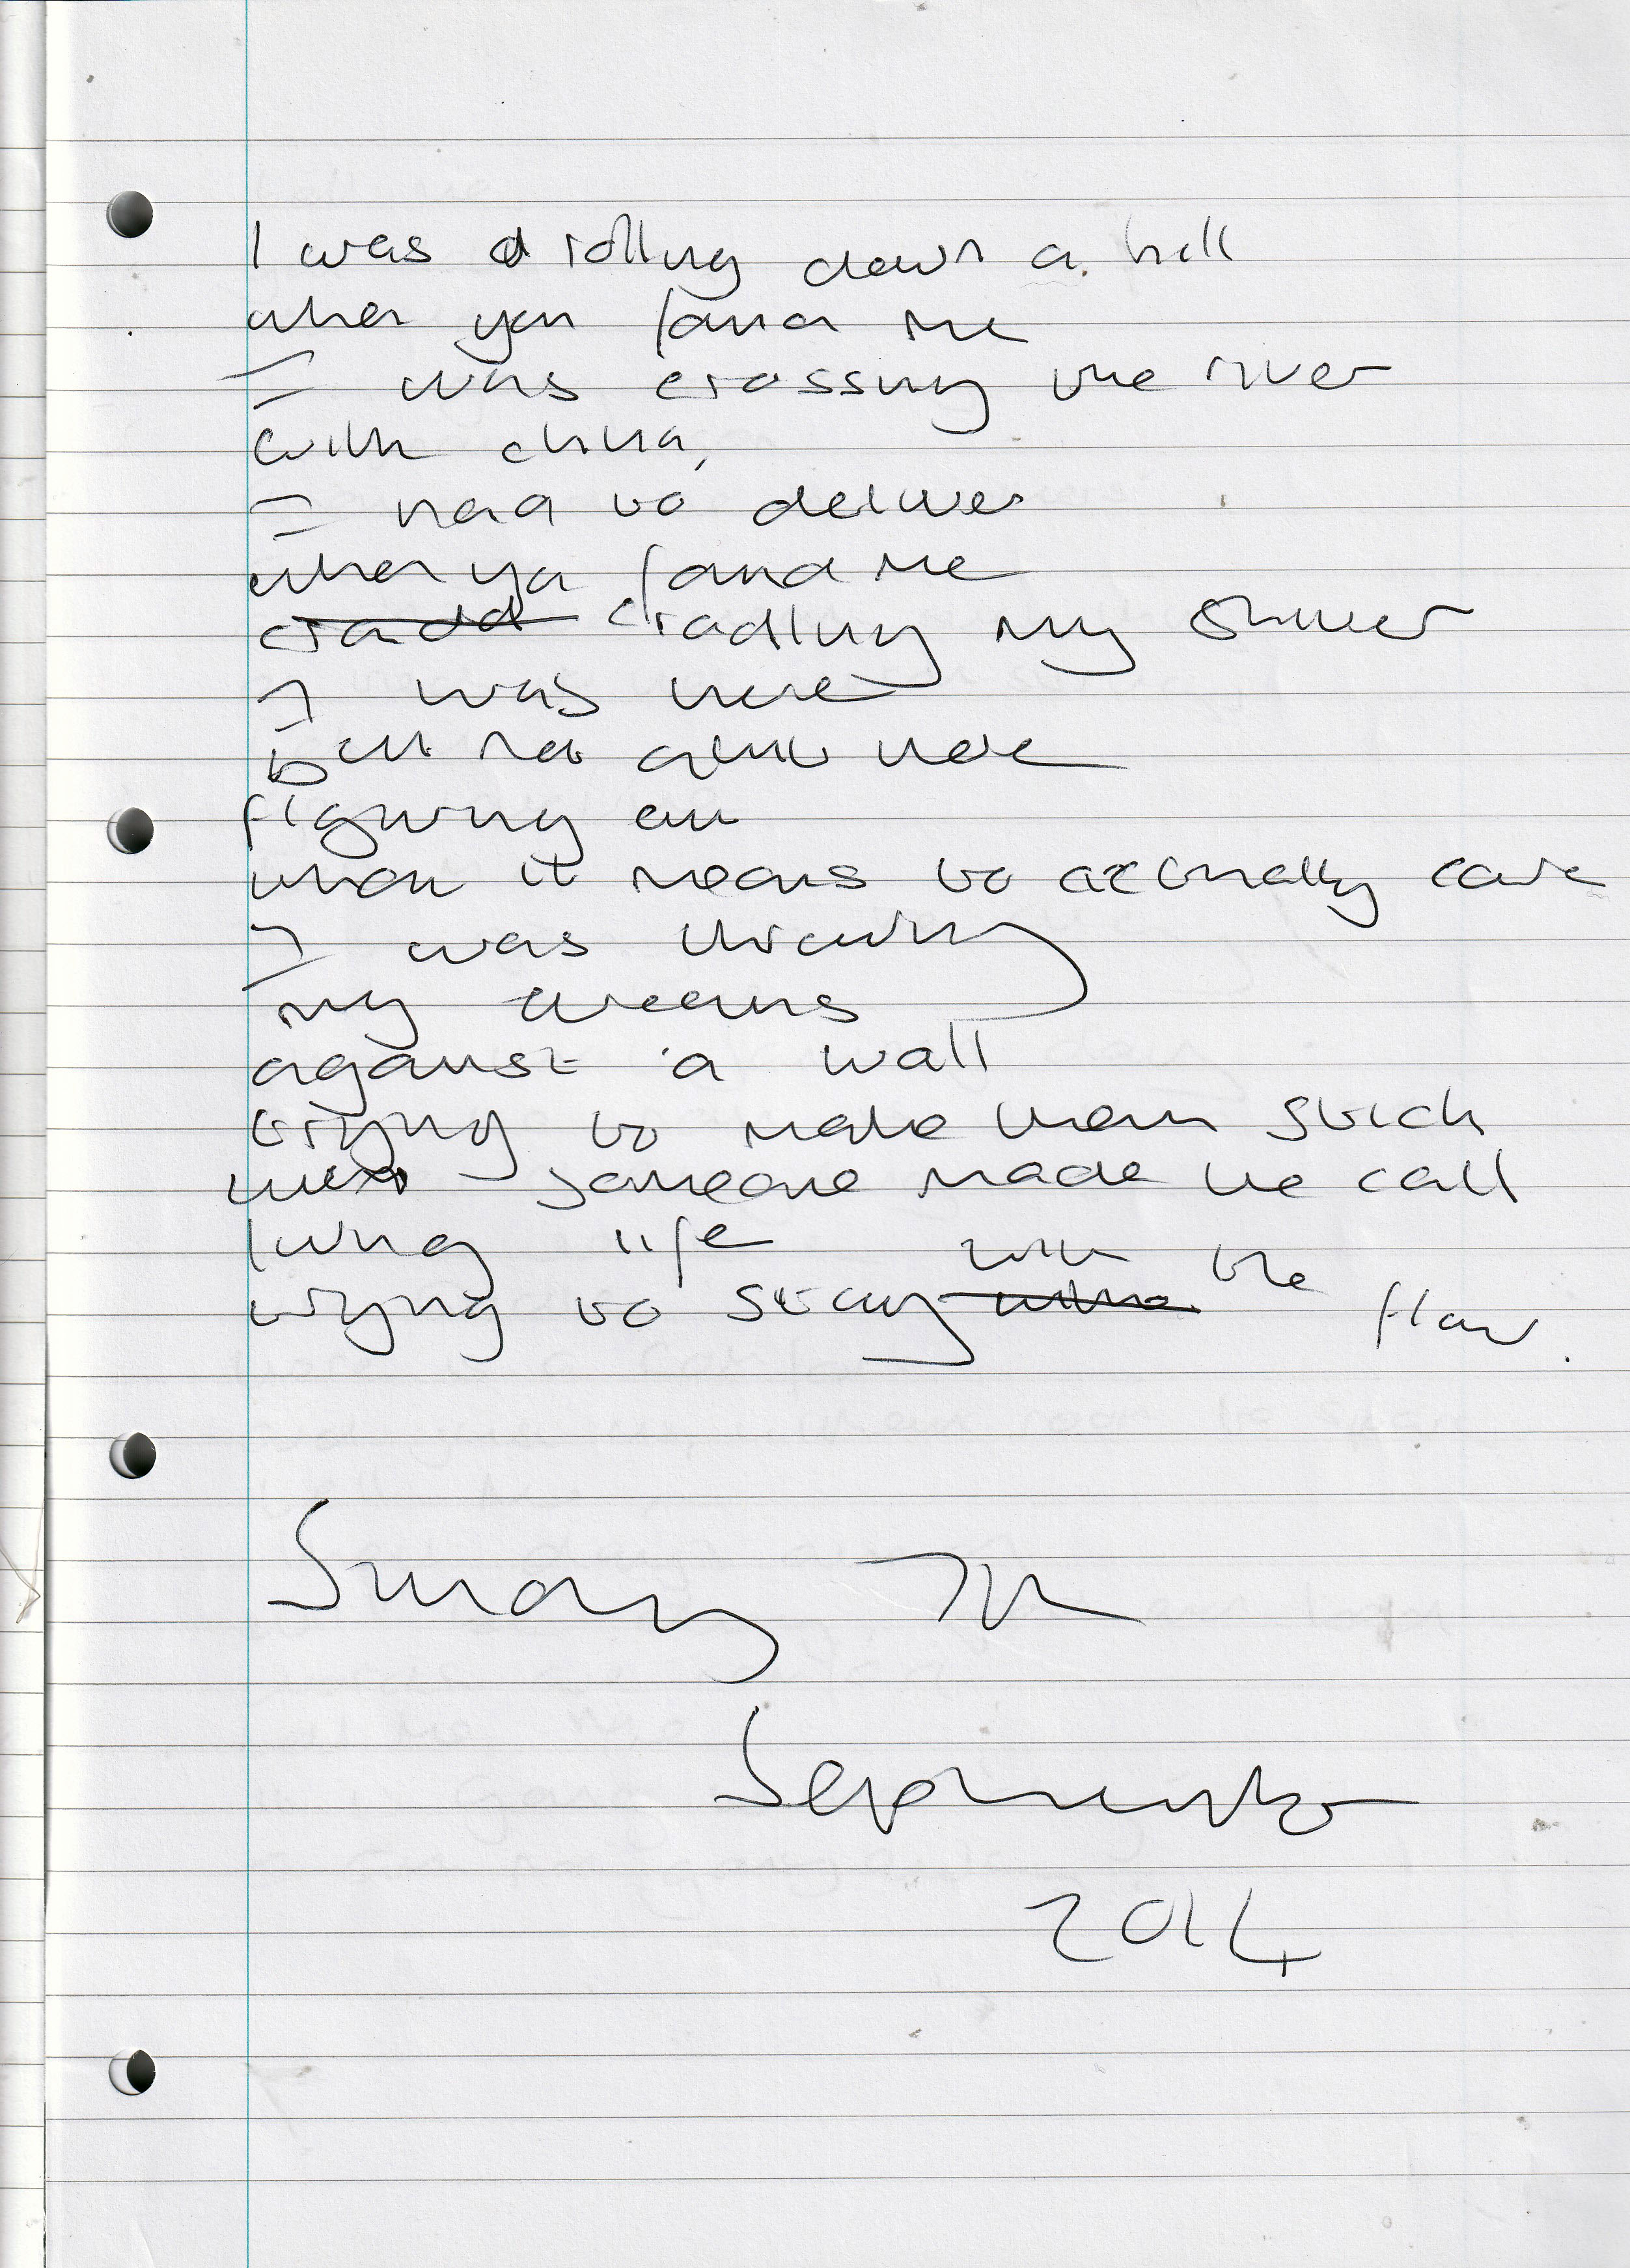 I was rolling down a hill
when you found me
I was crossing the river
with china,
I had to deliver
when you found me
cradling my shiver
I was there
but not quite there
figuring out
what it means to actually care
I was throwing
my dreams
against a wall
trying to make them stick
until someone made the call
living life
trying to stay with the flow.
Sunday 7th
September
2014